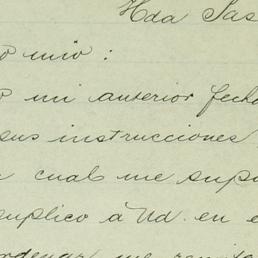 Hda Sas
o mio :
o mi anterior fecha
sus instrucciones
cual me supl
suplico á Ud. en e
ordenar me